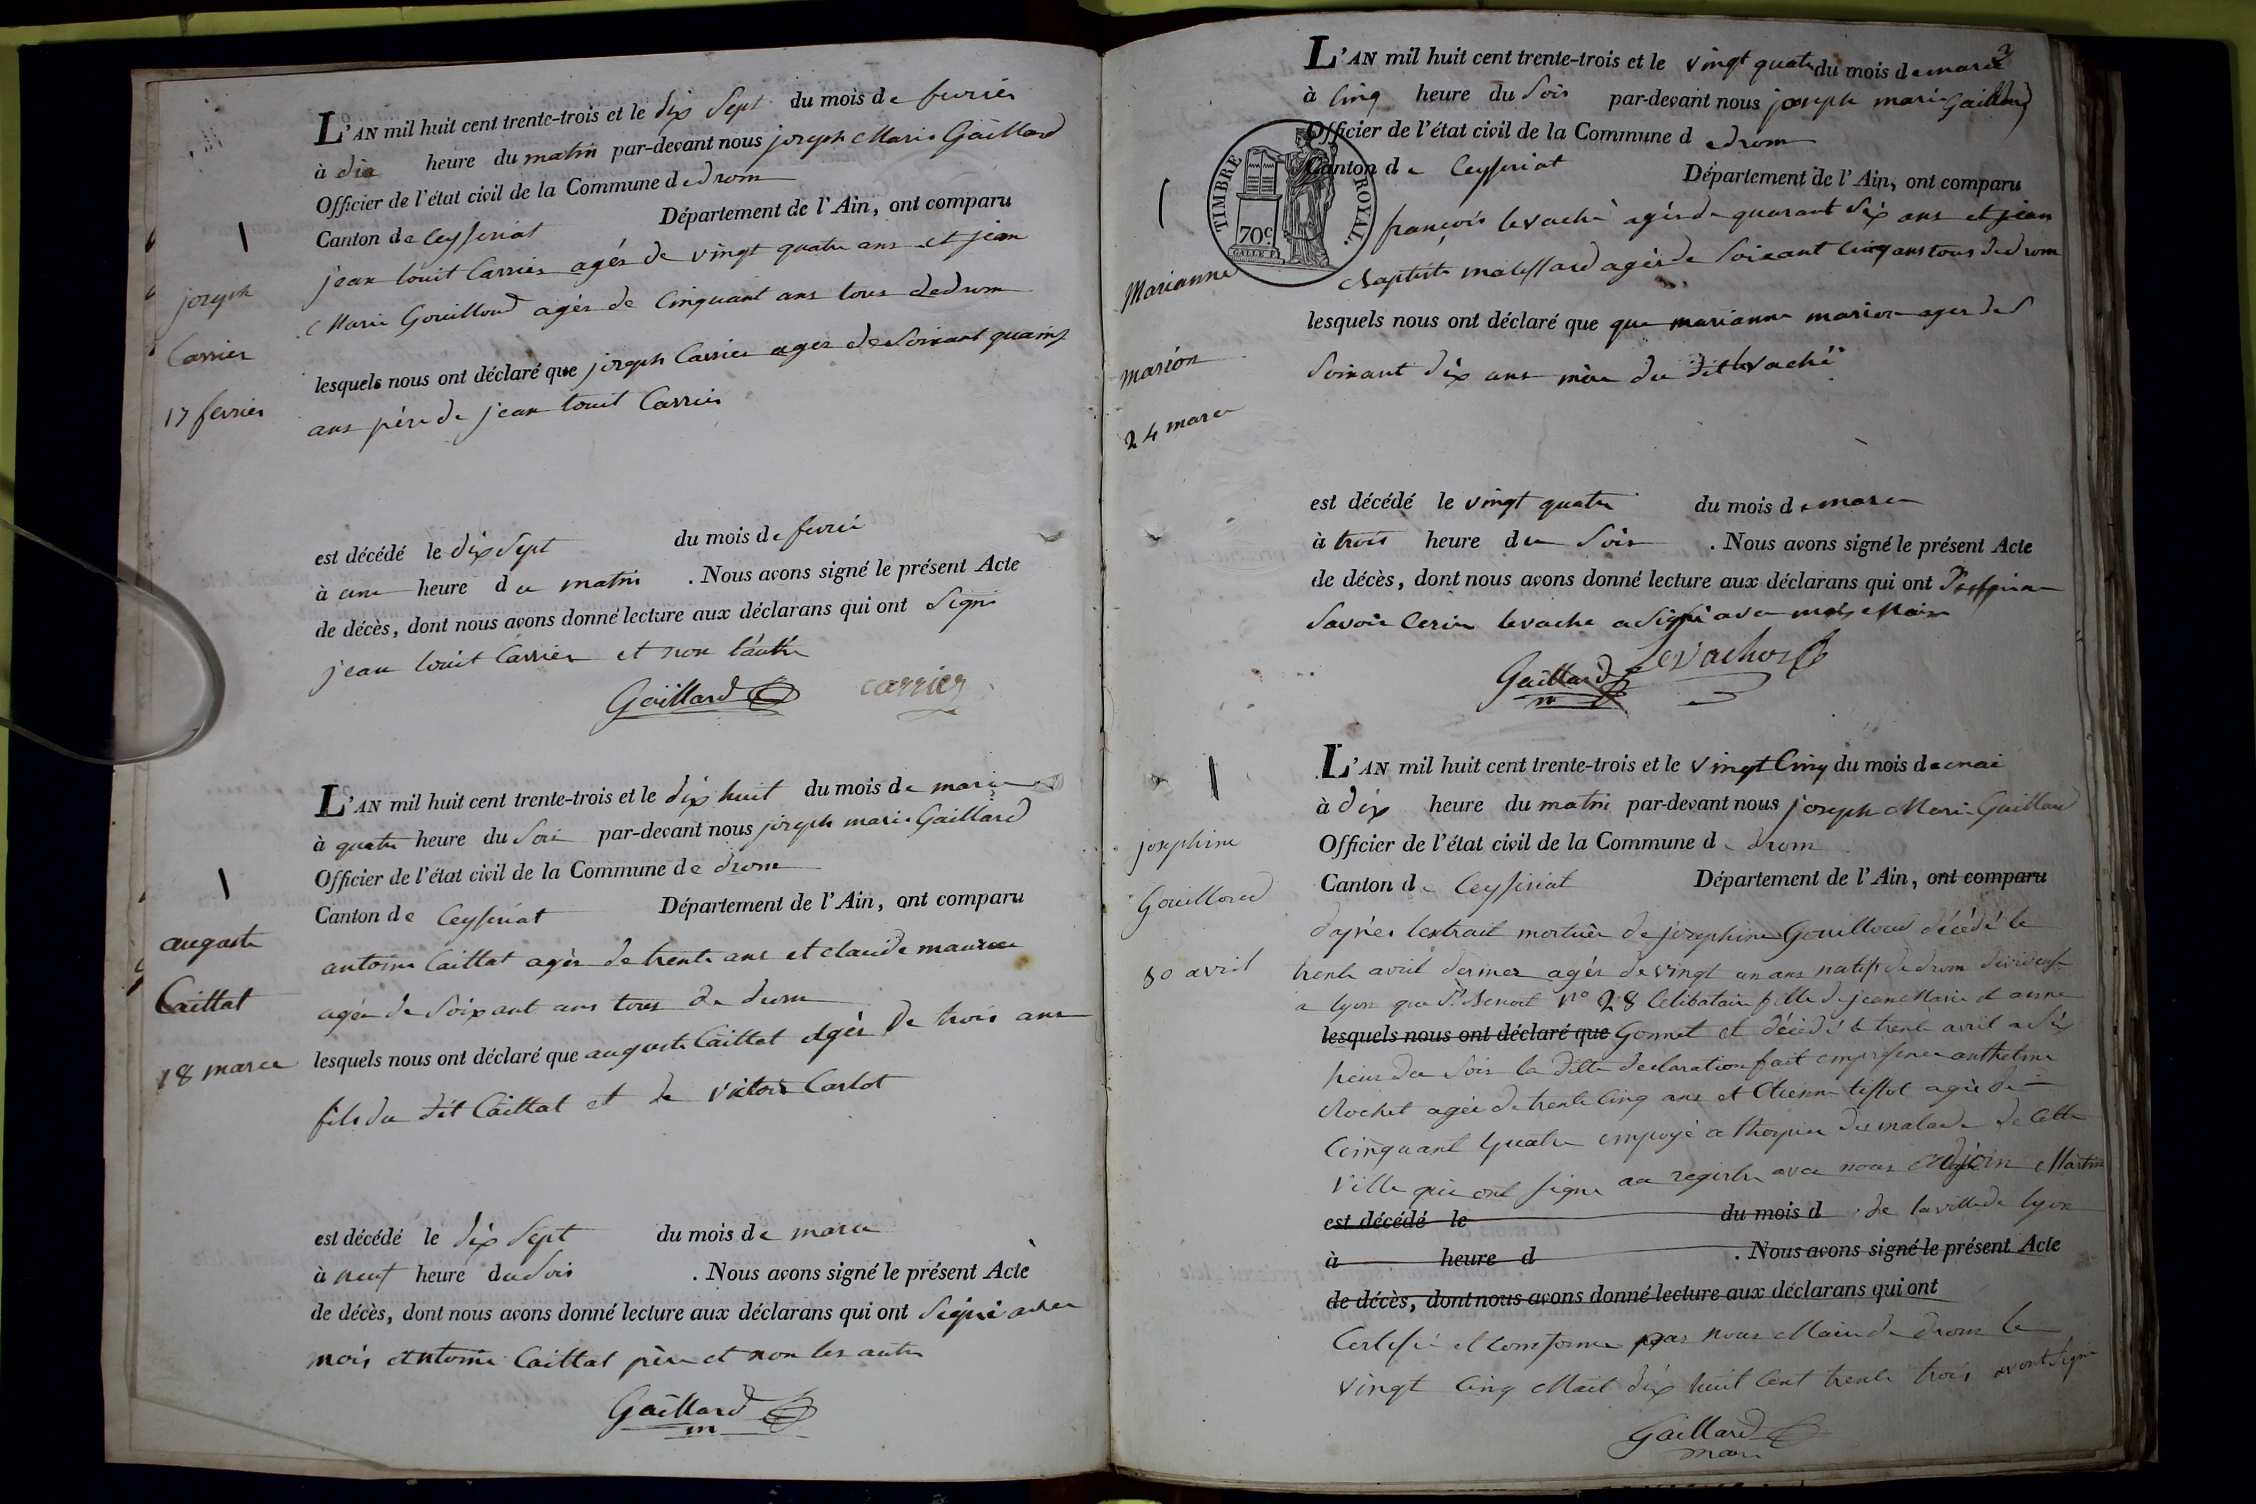 1
joseph
Carrier
17 fevrier
L'AN mil huit cent trente-trois et le dix sept du mois de fevrier
à dix heure du matin par-devant nous joseph Marie Gaillard
Officier de l'état civil de la Commune de drom
Canton de Ceyseriat Département de l'Ain, ont comparu
jean louit Carrier agés de vingt quatre ans et jean
Marie Gouilloud agés de Cinquant ans tous de drom
lesquels nous ont déclaré que joseph Carrier ages de Soixant quainz
ans père de jean louit Carrier
est décédé le dix Sept du mois de fevrié
à une heure du matin . Nous avons signé le présent Acte
de décès, dont nous avons donné lecture aux déclarans qui ont Signé
jean louit Carrier et non l'autre
Gaillard carrier
1
auguste
Caillat
18 marce
L'AN mil huit cent trente-trois et le dix huit du mois de marce
à quatre heure du Soir par-devant nous joseph marie Gaillard
Officier de l'état civil de la Commune de drom
Canton de Ceyseriat Département de l'Ain, ont comparu
antoine Caillat agés de trente ans et claude
agée de Soixant ans tous de drom
lesquels nous ont déclaré que auguste Caillat Agés De trois ans
fils du dit Caillat et de victoir Carlot
est décédé le dix Sept du mois de marce
à neuf heure du Soir . Nous avons signé le présent Acte
de décès, dont nous avons donné lecture aux déclarans qui ont Signé avec
mois Antoine Caillat père et non les autre
Gaillard
m
2
1
Marianne
marion
24 marce
TIMBRE ROYAL.
70c
L'AN mil huit cent trente-trois et le vingt quatre du mois de marce
à Cinq heure du Soir par-devant nous joseph marie Gaillard
Officier de l'état civil de la Commune de drom
Canton de Ceyseriat Département de l'Ain, ont comparu
françois levaché agés de quarant Six ans et jean
Baptiste agés de Soixant Cinq ans tous de drom
lesquels nous ont déclaré que que marianne marion ages de
Soixant dix ans mère du dit levaché
est décédé le vingt quatre du mois de marce
à trois heure du Soir . Nous avons signé le présent Acte
de décès, dont nous avons donné lecture aux déclarans qui ont
Savoir levache a Signé avec
Gaillard Levachez
m
1
josephine
Gouilloud
30 avril
L'AN mil huit cent trente-trois et le vingt Cinq du mois de mai
à dix heure du matin par-devant nous joseph Marie Gaillard
Officier de l'état civil de la Commune de drom
Canton de Ceyseriat Département de l'Ain, ont comparu
d'après lextrait mortuère de josephine Gouilloud décédé le
trente avril dernier agés de vingt un ans natif de drom
a lyon St Benoit No 28 Celibatair fille de jean Marie et anne
lesquels nous ont déclaré que Gonnet et décédé le trente avril a Six
heur du Soir la ditte declaration fait anthelme
Rochet agée de trente Cinq ans et Etienne tissot agée de
Cinquant quatre a de malade de Cette
ville qui ont signé au registre avec nous Adjoin Martin
est décédé le du mois d de la ville de lyon
à heure d . Nous avons signé le présent Acte
de décès, dont nous avons donné lecture aux déclarans qui ont
Certifié et conforme par nous Maire de drom le
vingt Cinq Mait dix huit Cent trente trois avont Signé
Gaillard